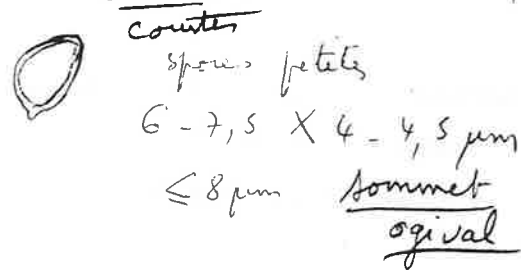 courtes
spores petites
6 - 7,5 X 4 - 4,5 µm
≤ 8 µm sommet
ogival